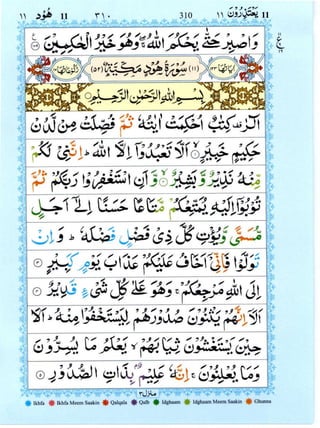 يَعْتَذِرُوْنَ 11 310 ٣١٠ هُوْد 11
وَاصْبِرْ حَتّٰى يَحْكُمَ اللّٰهُ ۚ وَهُوَ خَيْرُ الْحٰكِمِيْنَ
(١١) سُوْرَةُ هُوْدٍ مَكِّيَّةٌ (٥٢)
بِسْمِ اللّٰهِ الرَّحْمٰنِ الرَّحِيْمِ
الٓرٰ كِتٰبٌ اُحْكِمَتْ اٰيٰتُهٗ ثُمَّ فُصِّلَتْ مِنْ لَّدُنْ
حَكِيْمٍ خَبِيْرٍ ۙ اَلَّا تَعْبُدُوْۤا اِلَّا اللّٰهَ ؕ اِنَّنِيْ لَكُمْ
مِّنْهُ نَذِيْرٌ وَّبَشِيْرٌ ۙ وَّاَنِ اسْتَغْفِرُوْا رَبَّكُمْ ثُمَّ
تُوْبُوْۤا اِلَيْهِ يُمَتِّعْكُمْ مَّتَاعًا حَسَنًا اِلٰۤى اَجَلٍ
مُّسَمًّى وَّيُؤْتِ كُلَّ ذِيْ فَضْلٍ فَضْلَهٗ ؕ وَاِنْ
تَوَلَّوْا فَاِنِّيْۤ اَخَافُ عَلَيْكُمْ عَذَابَ يَوْمٍ كَبِيْرٍ
اِلَى اللّٰهِ مَرْجِعُكُمْ ۚ وَهُوَ عَلٰى كُلِّ شَيْءٍ قَدِيْرٌ
اَلَاۤ اِنَّهُمْ يَثْنُوْنَ صُدُوْرَهُمْ لِيَسْتَخْفُوْا مِنْهُ ؕ اَلَا
حِيْنَ يَسْتَغْشُوْنَ ثِيَابَهُمْ ۙ يَعْلَمُ مَا يُسِرُّوْنَ
وَمَا يُعْلِنُوْنَ ۚ اِنَّهٗ عَلِيْمٌۢ بِذَاتِ الصُّدُوْرِ
منزل ٣
Ikhfa Ikhfa Meem Saakin Qalqala Qalb Idghaam Idghaam Meem Saakin Ghunna